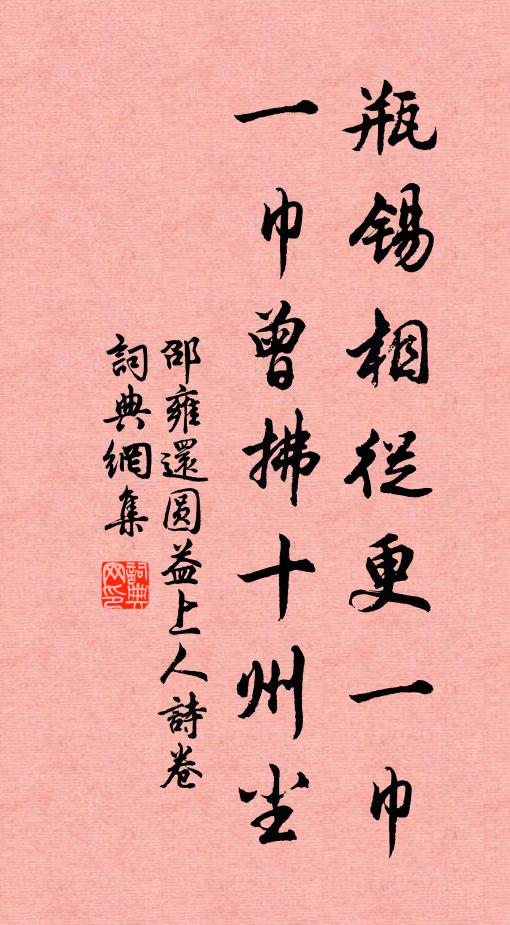 瓶錫相從更一巾
一巾曾拂十州尘
邵雍還圆益上人詩卷
詞典網集
詞典
网印